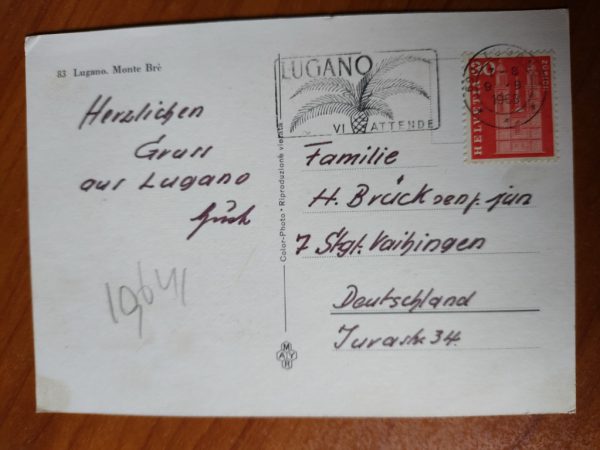 83 Lugano. Monte Brè
LUGANO
VI ATTENDE
HELVETIA
Herzlichen
Gruss
aus Lugano
1964
Color-Photo • Riproduzione vietata
MAYR
Familie
H. Brück jun
7 Stgt. Vaihingen
Deutschland
Jurastr. 34.